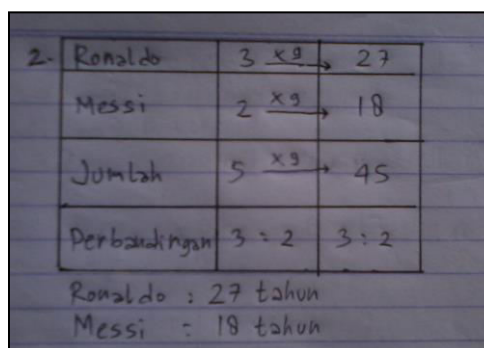 2. Ronaldo 3 x9 → 27
Messi 2 x9 → 18
Jumlah 5 x9 → 45
Perbandingan 3 : 2 3 : 2
Ronaldo : 27 tahun
Messi : 18 tahun